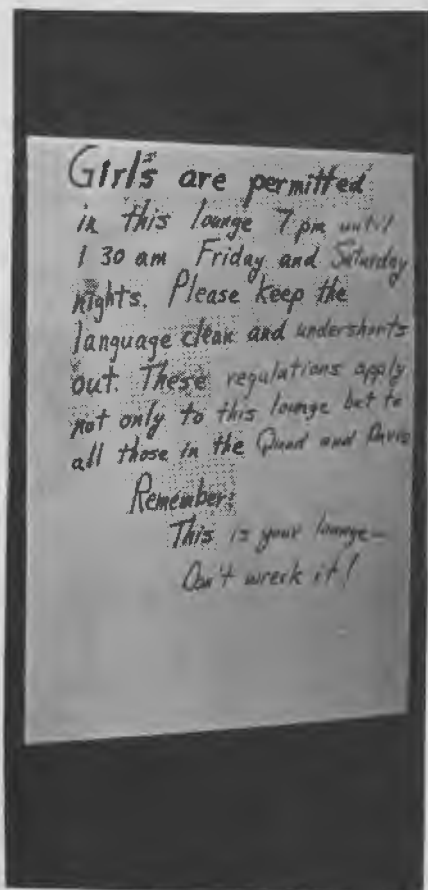 Girls are permitted
in this lounge 7 pm until
1 30 am Friday and Saturday
nights. Please keep the
language clean and undershorts
out. These regulations apply
not only to this lounge but to
all those in the Quad and Davis
Remember:
This is your lounge—
Don't wreck it!